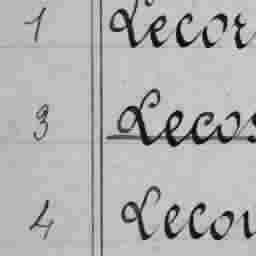 1 Lecor
3 Lecos
4 Lecou